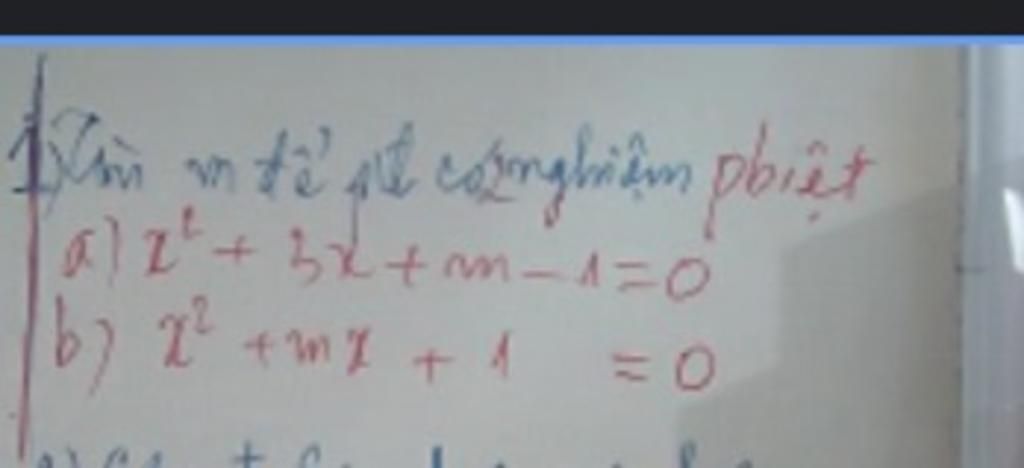 1) Tìm m để pt có 2 nghiệm pbiệt
a) x² + 3x + m - 1 = 0
b) x² + mx + 1 = 0